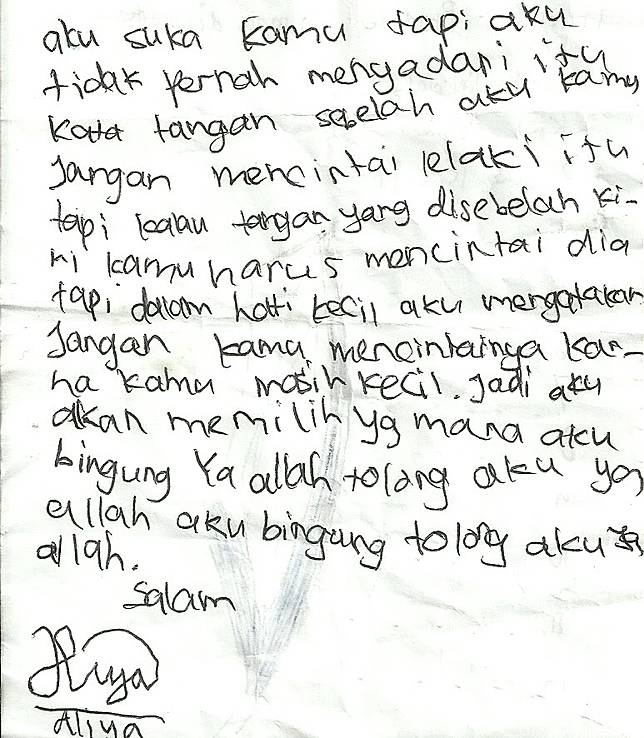 aku suka kamu tapi aku
tidak pernah mengadari itu
kata tangan sebelah aku kamu
Jangan mencintai lelaki itu
tapi kalau tangan yang disebelah ki-
ri kamu harus mencintai dia
tapi dalam hati kecil aku mengatakan
Jangan kamu mencintainya kar-
na kamu masih kecil. Jadi aku
akan memilih yg mana aku
bingung Ya allah tolong aku ya
allah aku bingung tolong aku ya
allah.
Salam
Aliya
Aliya